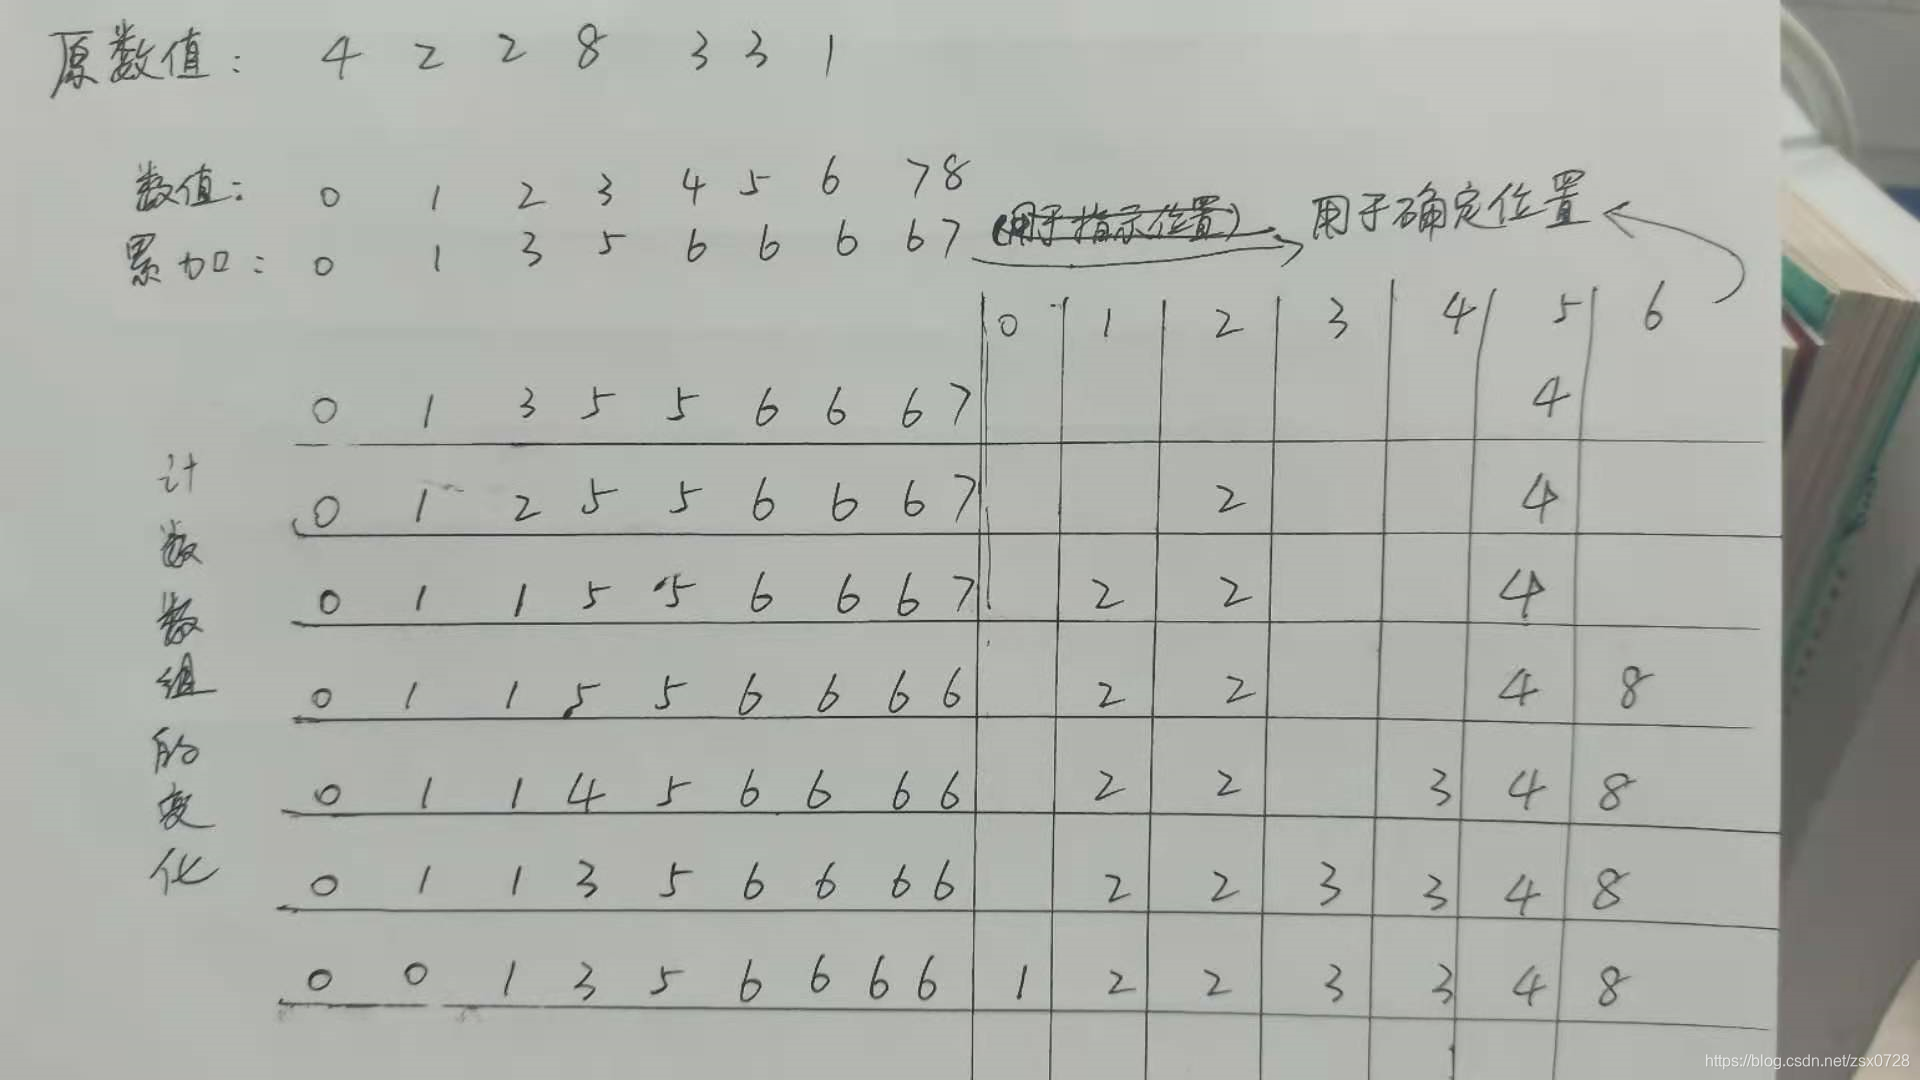 原数值： 4 2 2 8 3 3 1
数值： 0 1 2 3 4 5 6 7 8
累加： 0 1 3 5 6 6 6 6 7 (用于指示位置) 用于确定位置
0 1 2 3 4 5 6
0 1 3 5 5 6 6 6 7 4
0 1 2 5 5 6 6 6 7 2 4
0 1 1 5 5 6 6 6 7 2 2 4
0 1 1 5 5 6 6 6 6 2 2 4 8
0 1 1 4 5 6 6 6 6 2 2 3 4 8
0 1 1 3 5 6 6 6 6 2 2 3 3 4 8
0 0 1 3 5 6 6 6 6 1 2 2 3 3 4 8
计数数组的变化
https://blog.csdn.net/zsx0728